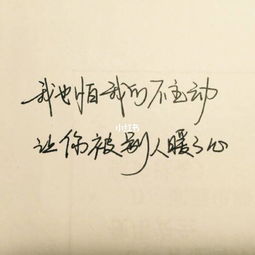 我也怕我的不主动
小红书
让你被别人暖了心